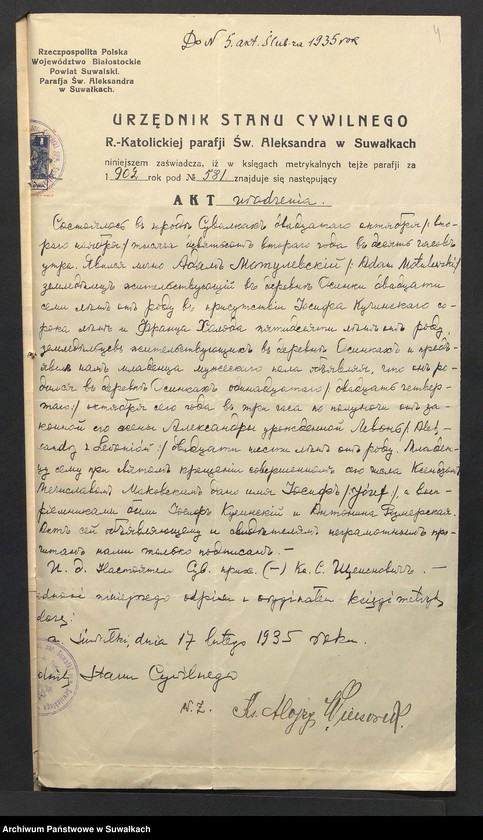 Do N 5. akt. Ślub. za 1935 rok
4
Rzeczpospolita Polska
Województwo Białostockie
Powiat Suwalski.
Parafja Św. Aleksandra
w Suwałkach.
URZĘDNIK STANU CYWILNEGO
R.-Katolickiej parafji Św. Aleksandra w Suwałkach
niniejszem zaświadcza, iż w księgach metrykalnych tejże parafji za
1902 rok pod № 581 znajduje się następujący
AKT urodzenia.
Состоялось въ городѣ Сувалкахъ двадцатаго октября /: вто-
рого ноября / тысяча девятьсотъ второго года въ десять часовъ
утра. Явился лично Адамъ Мотулевскій /: Adam Motulewski /
земледѣлецъ жительствующій въ деревнѣ Осинки двадцати
семи лѣтъ отъ роду въ присутствіи Іосифа Кучинскаго со-
рока лѣтъ и Франца пятидесяти лѣтъ отъ роду,
земледѣльцевъ жительствующихъ въ деревнѣ Осинкахъ и предъ-
явилъ намъ младенца мужескаго пола объявляя, что онъ ро-
дился въ деревнѣ Осинкахъ одиннадцатаго / двадцать четвер-
таго / октября сего года въ три часа по полуночи отъ за-
конной его жены Александры урожденной Левонь / Alek-
sandry z Lewoniów :/ двадцати шести лѣтъ отъ роду. Младен-
цу сему при святомъ крещеніи совершенномъ сего числа Ксендзомъ
Мечиславомъ Маковскимъ дано имя Іосифъ / Józef /, а вос-
пріемниками были Іосифъ Кучинскій и Антонина
Актъ сей объявляющему и свидѣтелямъ неграмотнымъ про-
читанъ нами только подписанъ. —
И. д. Настоятеля Сув. прих. (-) Кс. —
zgodność niniejszego odpisu z oryginałem księgi metryk
Suwałki, dnia 17 lutego 1935 roku.
Stanu Cywilnego
w. z. Ks. Alojzy
Archiwum Państwowe w Suwałkach